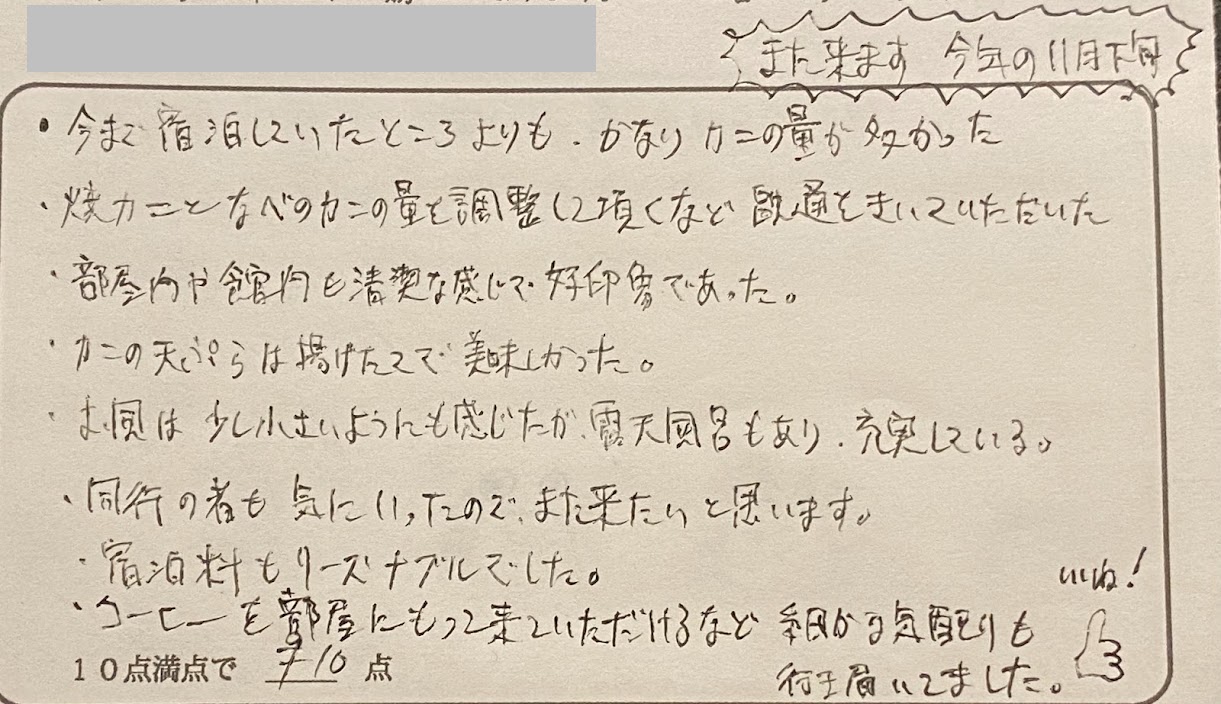 また来ます 今年の11月下旬
・今まで宿泊していたところよりも、かなりカニの量が多かった
・焼カニとなべのカニの量を調整して頂くなど融通をきいていただいた
・部屋内や館内も清潔な感じで好印象であった。
・カニの天ぷらは揚げたてで美味しかった。
・お風は少し小さいようにも感じたが、露天風呂もあり、充実している。
・同行の者も気にいったので、また来たいと思います。
・宿泊料もリーズナブルでした。
いいね!
・コーヒーを部屋にもって来ていただけるなど細かな気配りも
行き届いてました。
10点満点で 10 点